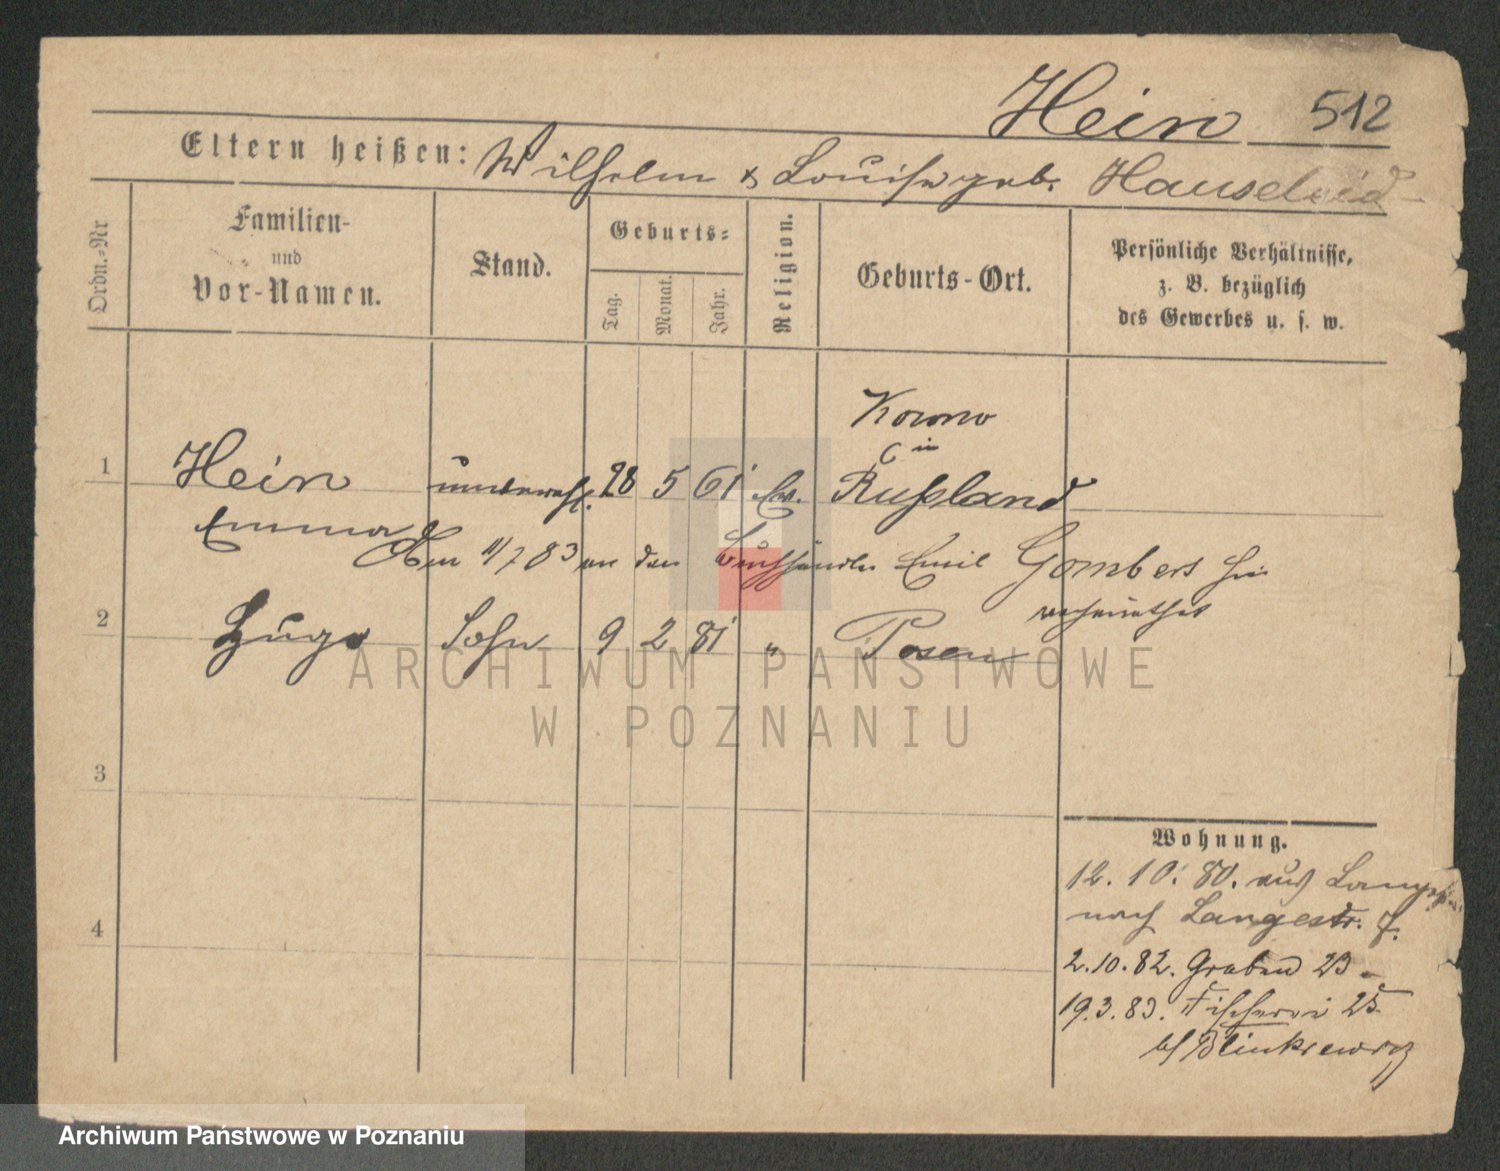 Hein 512
Eltern heißen: Wilhelm & Louise geb.
Ordn.-Nr
Familien-
und
Vor-Namen.
Stand.
Geburts-
Tag.
Monat.
Jahr.
Religion.
Geburts-Ort.
Persönliche Verhältnisse,
z. B. bezüglich
des Gewerbes u. s. w.
Kowno
in
1 Hein unverehl. 28 5 61 Ev. Rußland
Emma
Am 11/7 83 an den Buchhändler Emil Gombers hier
verheirathet
2 Hugo Sohn 9 2 81 " Posen
ARCHIWUM PAŃSTWOWE
W POZNANIU
3
4
Wohnung.
12. 10. 80. aus
nach Langestr. 7.
2.10.82. Graben 23
19.3.83. Fischerei 25
bei
Archiwum Państwowe w Poznaniu